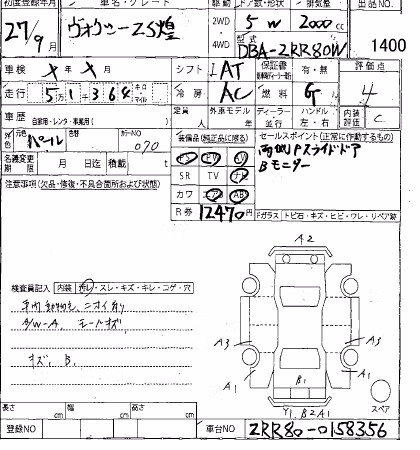 初度登録年月 車名・グレード 駆動 ドア数・形状 排気量 出品NO.
27/9月 ヴォクシー ZS煌 2WD・4WD 5 W 2000cc
型式 DBA-ZRR80W 1400
車検 × 年 × 月 シフト IAT 保証書 有・無 評価点
走行 5万1千364 キロ マイル 冷房 AC 燃料 G 4
車歴 自家用・レンタ・事業用( ) 定員 人 外車モデル 年 ディーラー・並行 ハンドル 左・右 内装評価 C
外色 元色 パール カラーNO 070
装備品(純正品に限る) セールスポイント(正常に作動するもの)
両側Pスライドドア
Bモニター
名義変更期限 月 日迄 積載 t
SR TV ナビ
カワ エアB AB
R券 12470円
注意事項(欠品・修復・不具合箇所および状態)
Fガラス トビ石・キズ・ヒビ・ワレ・リペア跡
A2
検査員記入 内装 汚レ・スレ・キズ・キレ・コゲ・穴
ニオイ有り
A/W-A
キズ、B、
A3 A3
A1 A1
B1
Y1, B2A1
スペア
長さ cm 幅 cm 高さ cm
登録NO 車台NO ZRR80-0158356